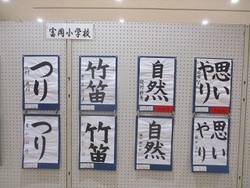 富岡小学校
つり
竹笛
自然
思いやり
つり
竹笛
自然
思いやり